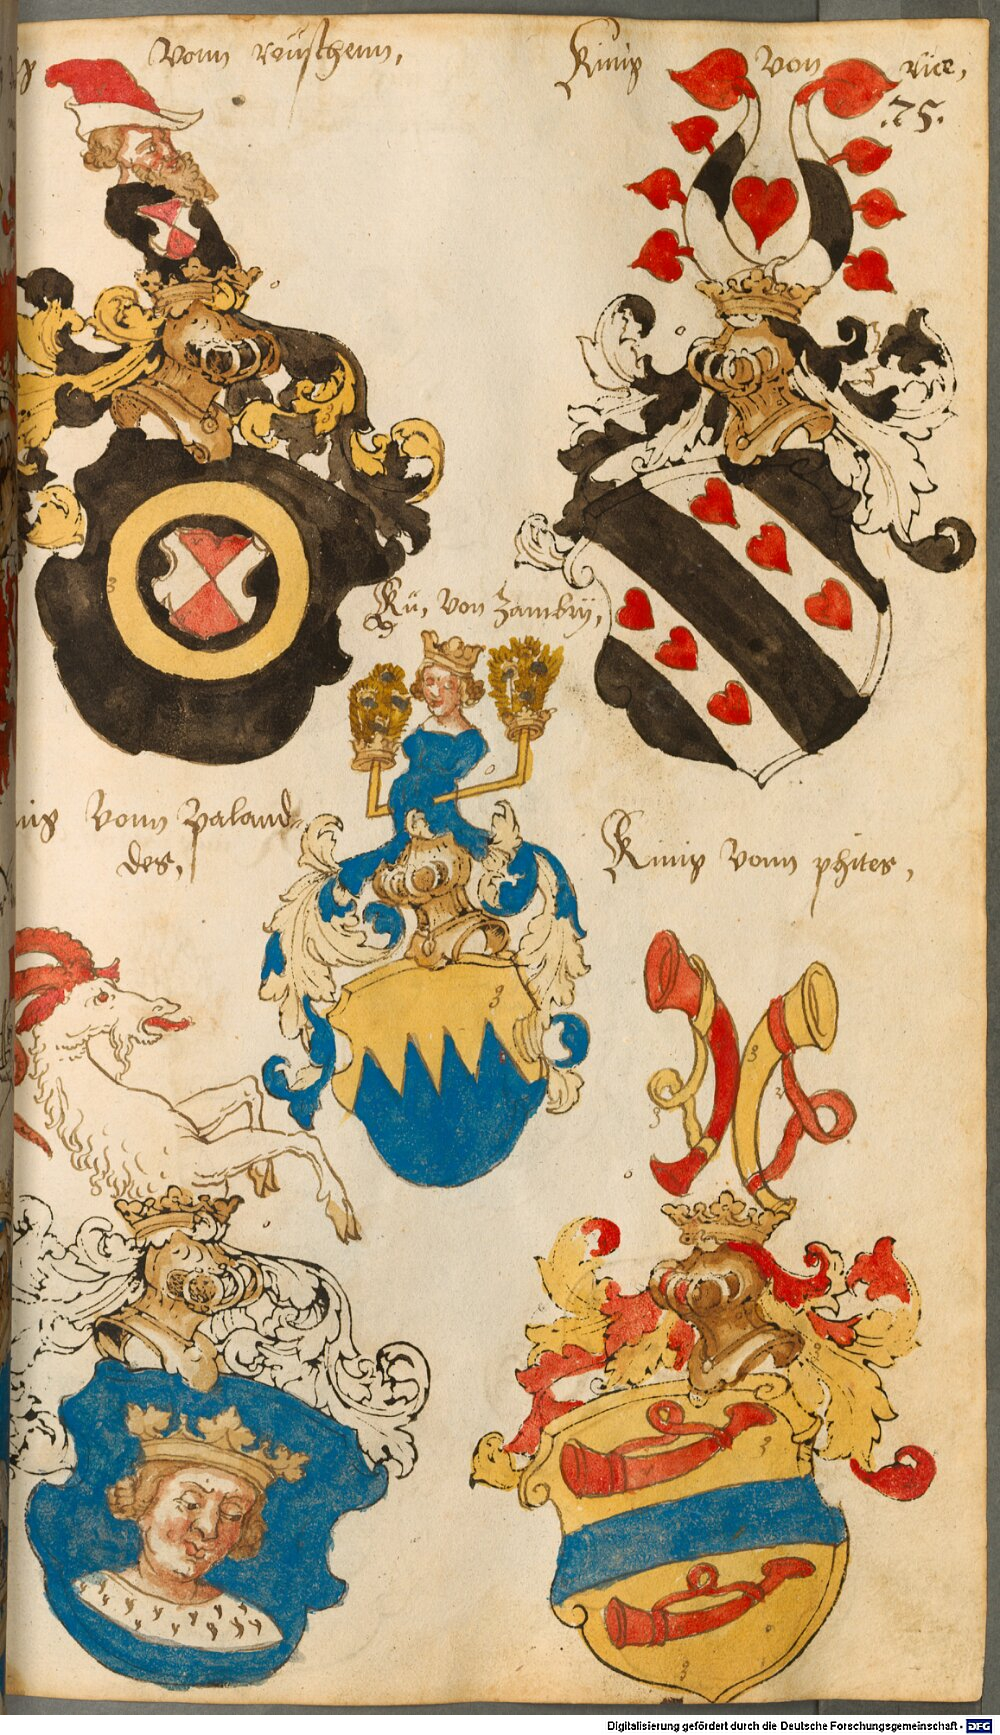 vonn reüschenn,
Künig von rice,
.75.
Kü, von Zambrÿ,
nig vonn paland-
des,
Künig vonn phites,
Digitalisierung gefördert durch die Deutsche Forschungsgemeinschaft - DFG